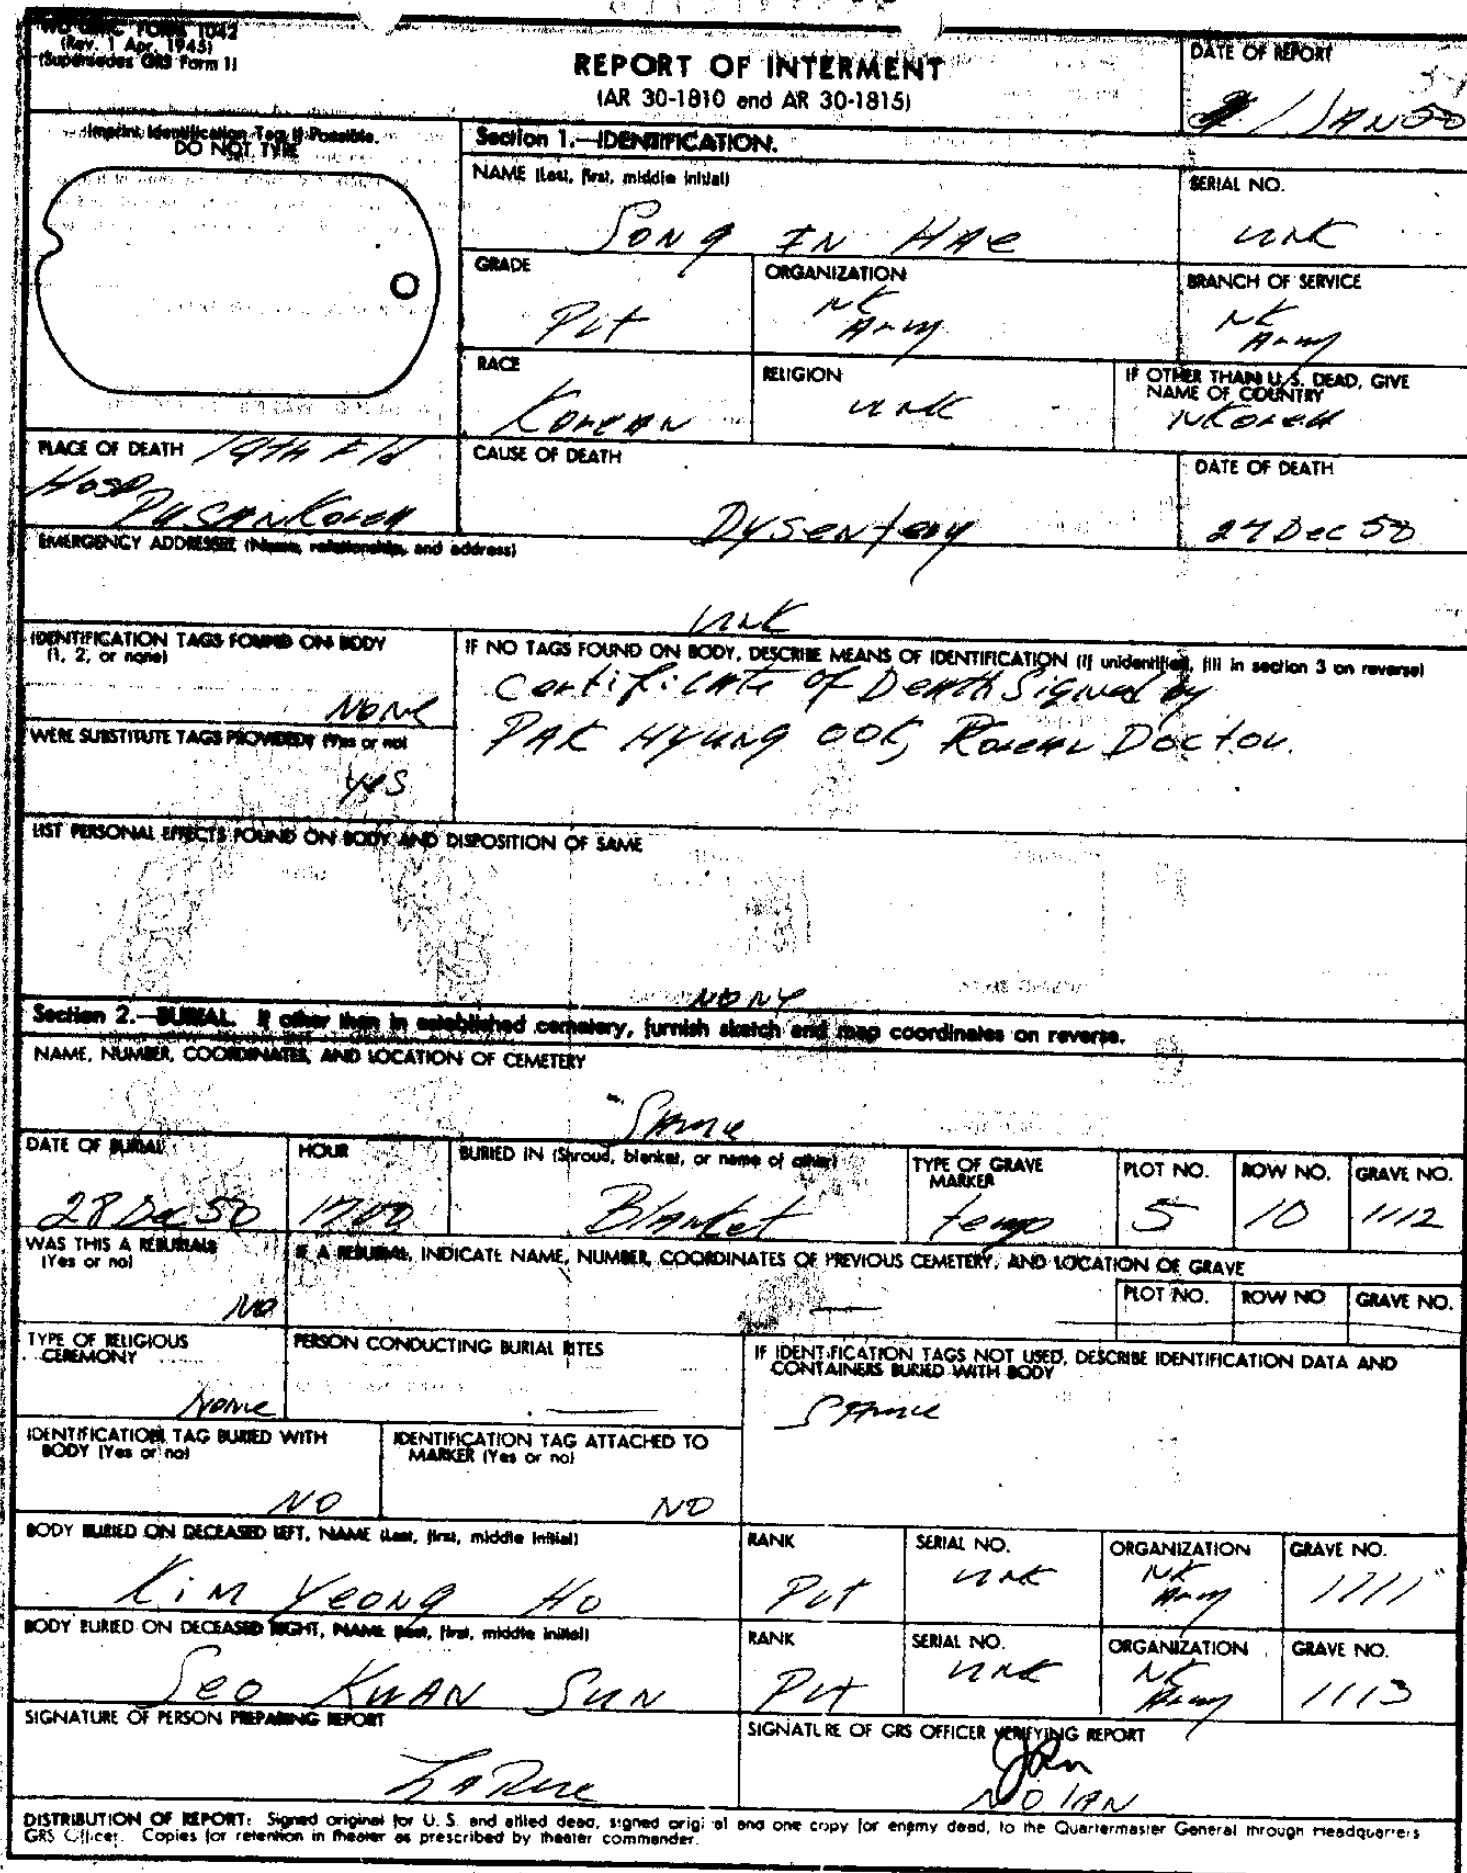 WD QMC FORM 1042
(Rev. 1 Apr. 1945)
(Supersedes GRS Form 1)
REPORT OF INTERMENT
(AR 30-1810 and AR 30-1815)
DATE OF REPORT
1 JAN 50
Imprint Identification Tag If Possible.
DO NOT TYPE
Section 1.—IDENTIFICATION.
NAME (Last, first, middle initial)
Song IN HAe
SERIAL NO.
UNK
GRADE
Pvt
ORGANIZATION
NK
Army
BRANCH OF SERVICE
NK
Army
RACE
Korean
RELIGION
UNK
IF OTHER THAN U.S. DEAD, GIVE
NAME OF COUNTRY
NKorea
PLACE OF DEATH 14th Fld
Hosp
Pusan Korea
CAUSE OF DEATH
Dysentery
DATE OF DEATH
27 Dec 50
EMERGENCY ADDRESSEE (Name, relationship, and address)
UNK
IDENTIFICATION TAGS FOUND ON BODY
(1, 2, or none)
None
IF NO TAGS FOUND ON BODY, DESCRIBE MEANS OF IDENTIFICATION (If unidentified, fill in section 3 on reverse)
Certificate of Death Signed by
PAK Hyung OOK, Korean Doctor.
WERE SUBSTITUTE TAGS PROVIDED? (Yes or no)
yes
LIST PERSONAL EFFECTS FOUND ON BODY AND DISPOSITION OF SAME
NONE
Section 2.—BURIAL. If other than in established cemetery, furnish sketch and map coordinates on reverse.
NAME, NUMBER, COORDINATES, AND LOCATION OF CEMETERY
Same
DATE OF BURIAL
28 Dec 50
HOUR
1700
BURIED IN (Shroud, blanket, or name of other)
Blanket
TYPE OF GRAVE
MARKER
temp
PLOT NO.
5
ROW NO.
10
GRAVE NO.
1112
WAS THIS A REBURIAL?
(Yes or no)
No
IF A REBURIAL, INDICATE NAME, NUMBER, COORDINATES OF PREVIOUS CEMETERY, AND LOCATION OF GRAVE
PLOT NO.
ROW NO
GRAVE NO.
TYPE OF RELIGIOUS
CEREMONY
None
PERSON CONDUCTING BURIAL RITES
IF IDENTIFICATION TAGS NOT USED, DESCRIBE IDENTIFICATION DATA AND
CONTAINERS BURIED WITH BODY
Same
IDENTIFICATION TAG BURIED WITH
BODY (Yes or no)
NO
IDENTIFICATION TAG ATTACHED TO
MARKER (Yes or no)
NO
BODY BURIED ON DECEASED LEFT, NAME (Last, first, middle initial)
Kim Yeong Ho
RANK
Pvt
SERIAL NO.
UNK
ORGANIZATION
NK
Army
GRAVE NO.
1111
BODY BURIED ON DECEASED RIGHT, NAME (Last, first, middle initial)
Seo KWAN SUN
RANK
Pvt
SERIAL NO.
UNK
ORGANIZATION
NK
Army
GRAVE NO.
1113
SIGNATURE OF PERSON PREPARING REPORT
LaRue
SIGNATURE OF GRS OFFICER VERIFYING REPORT
NOlAN
DISTRIBUTION OF REPORT: Signed original for U. S. and allied dead, signed original and one copy for enemy dead, to the Quartermaster General through Headquarters
GRS Officer. Copies for retention in theater as prescribed by theater commander.